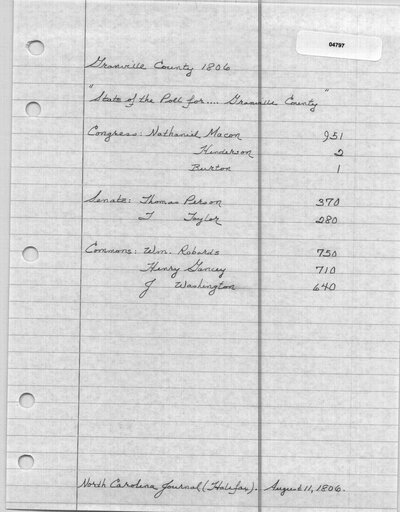 04797
Granville County 1806
"State of the Poll for.... Granville County"
Congress: Nathaniel Macon 951
Henderson 2
Burton 1
Senate: Thomas Person 370
T Taylor 280
Commons: Wm. Robards 750
Henry Yancey 710
J Washington 640
North Carolina Journal (Halifax). August 11, 1806.